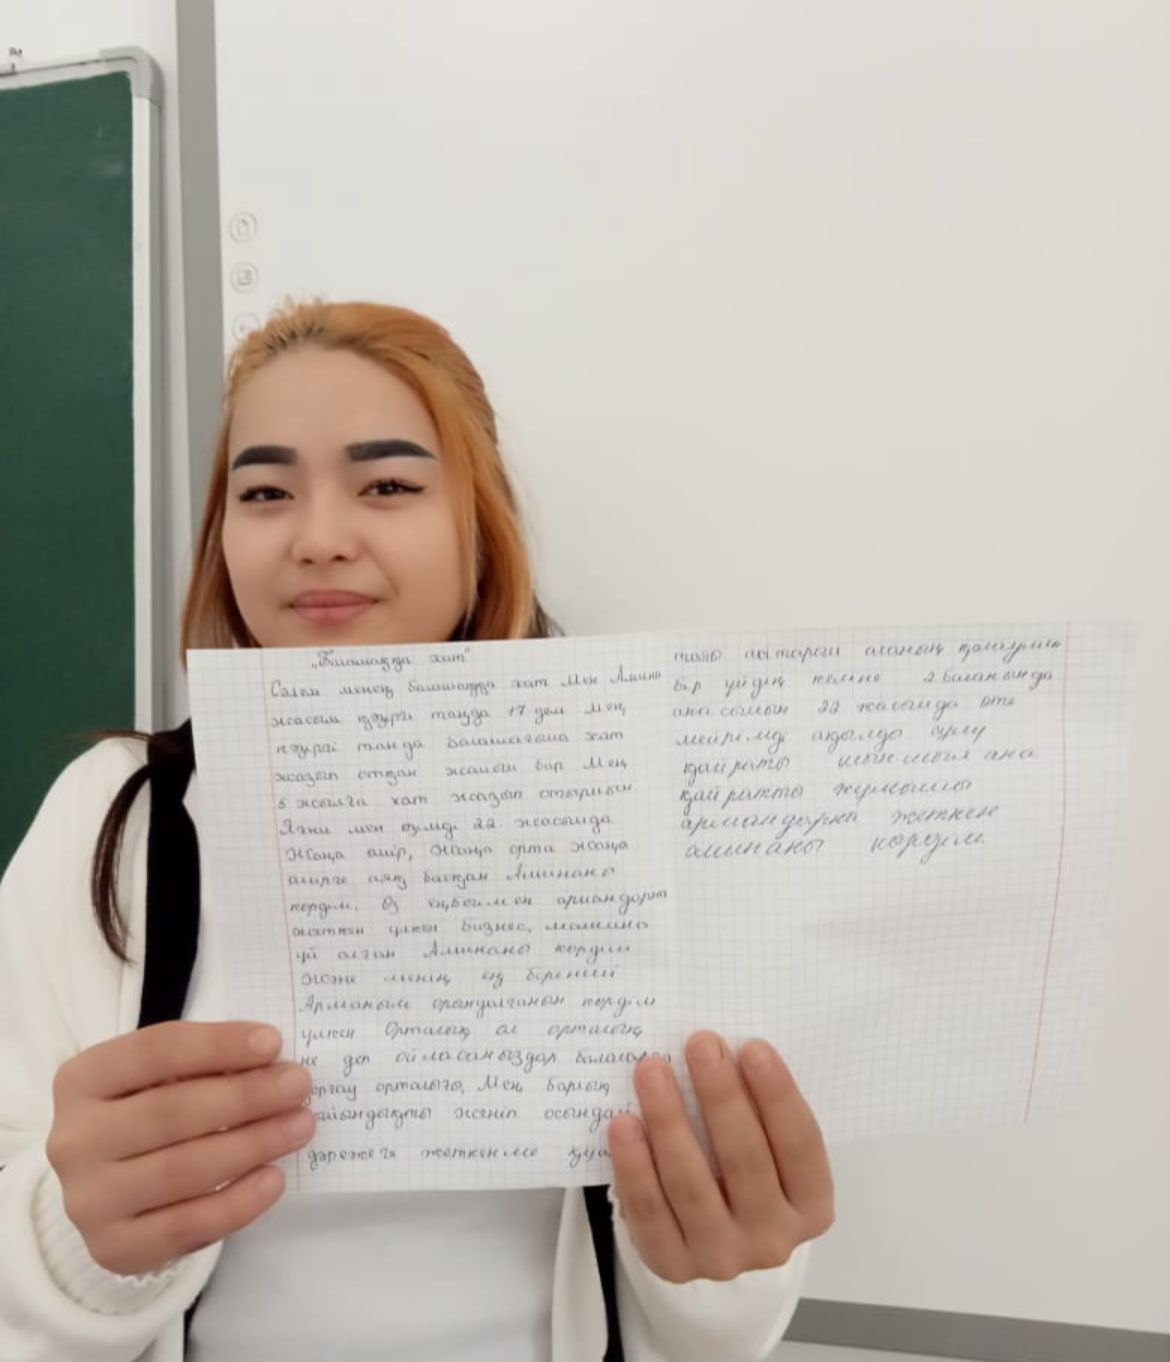 „Болашаққа хат"
Сәлем менең болашаққа хат Мен Амина
жасым қәзіргі таңда 17 дем Мен,
қәзіргі таңда болашағыма хат
жазып отған жайым бар Мен
5 жылға хат жазып отырмын
Яғни мен өзімді 22 жасымда
Жаңа өмір, Жаңа орта жаңа
өмірге аяқ басқан Аминаны
көрдім. Өз еңбегімен арман дарға
жеткен үлкен Бизнес, машина
үй алған Аминаны көрдім
Және менің ең бірінші
Арманым орындалғанын көрдім
үлкен Орталық ол орталық
не деп ойласаңыздар балаларды
қорғау орталығы, Мен барлық
қиындықты жеңіп осындай
дәрежеге жеткеніме
аланың
бір үйдің келіні 2 баланында
анасымын 22 жасымда өте
мейрімді ақылды сұлу
қайратты шыншыл ана
қайратты жұмысшы
армандарна жеткен
аминаны көрдім.